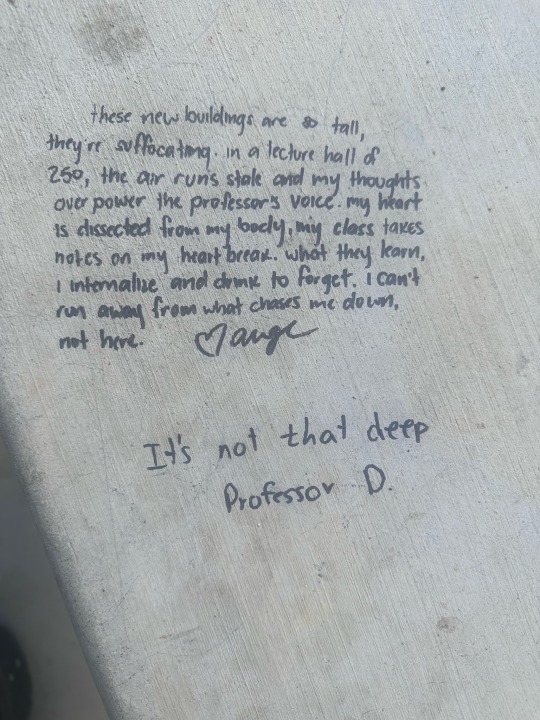 these new buildings are so tall,
they're suffocating. in a lecture hall of
250, the air runs stale and my thoughts
over power the professor's voice. my heart
is dissected from my body, my class takes
notes on my heartbreak. what they learn,
i internalize and drink to forget. i can't
run away from what chases me down,
not here. ♡ange
It's not that deep
Professor D.